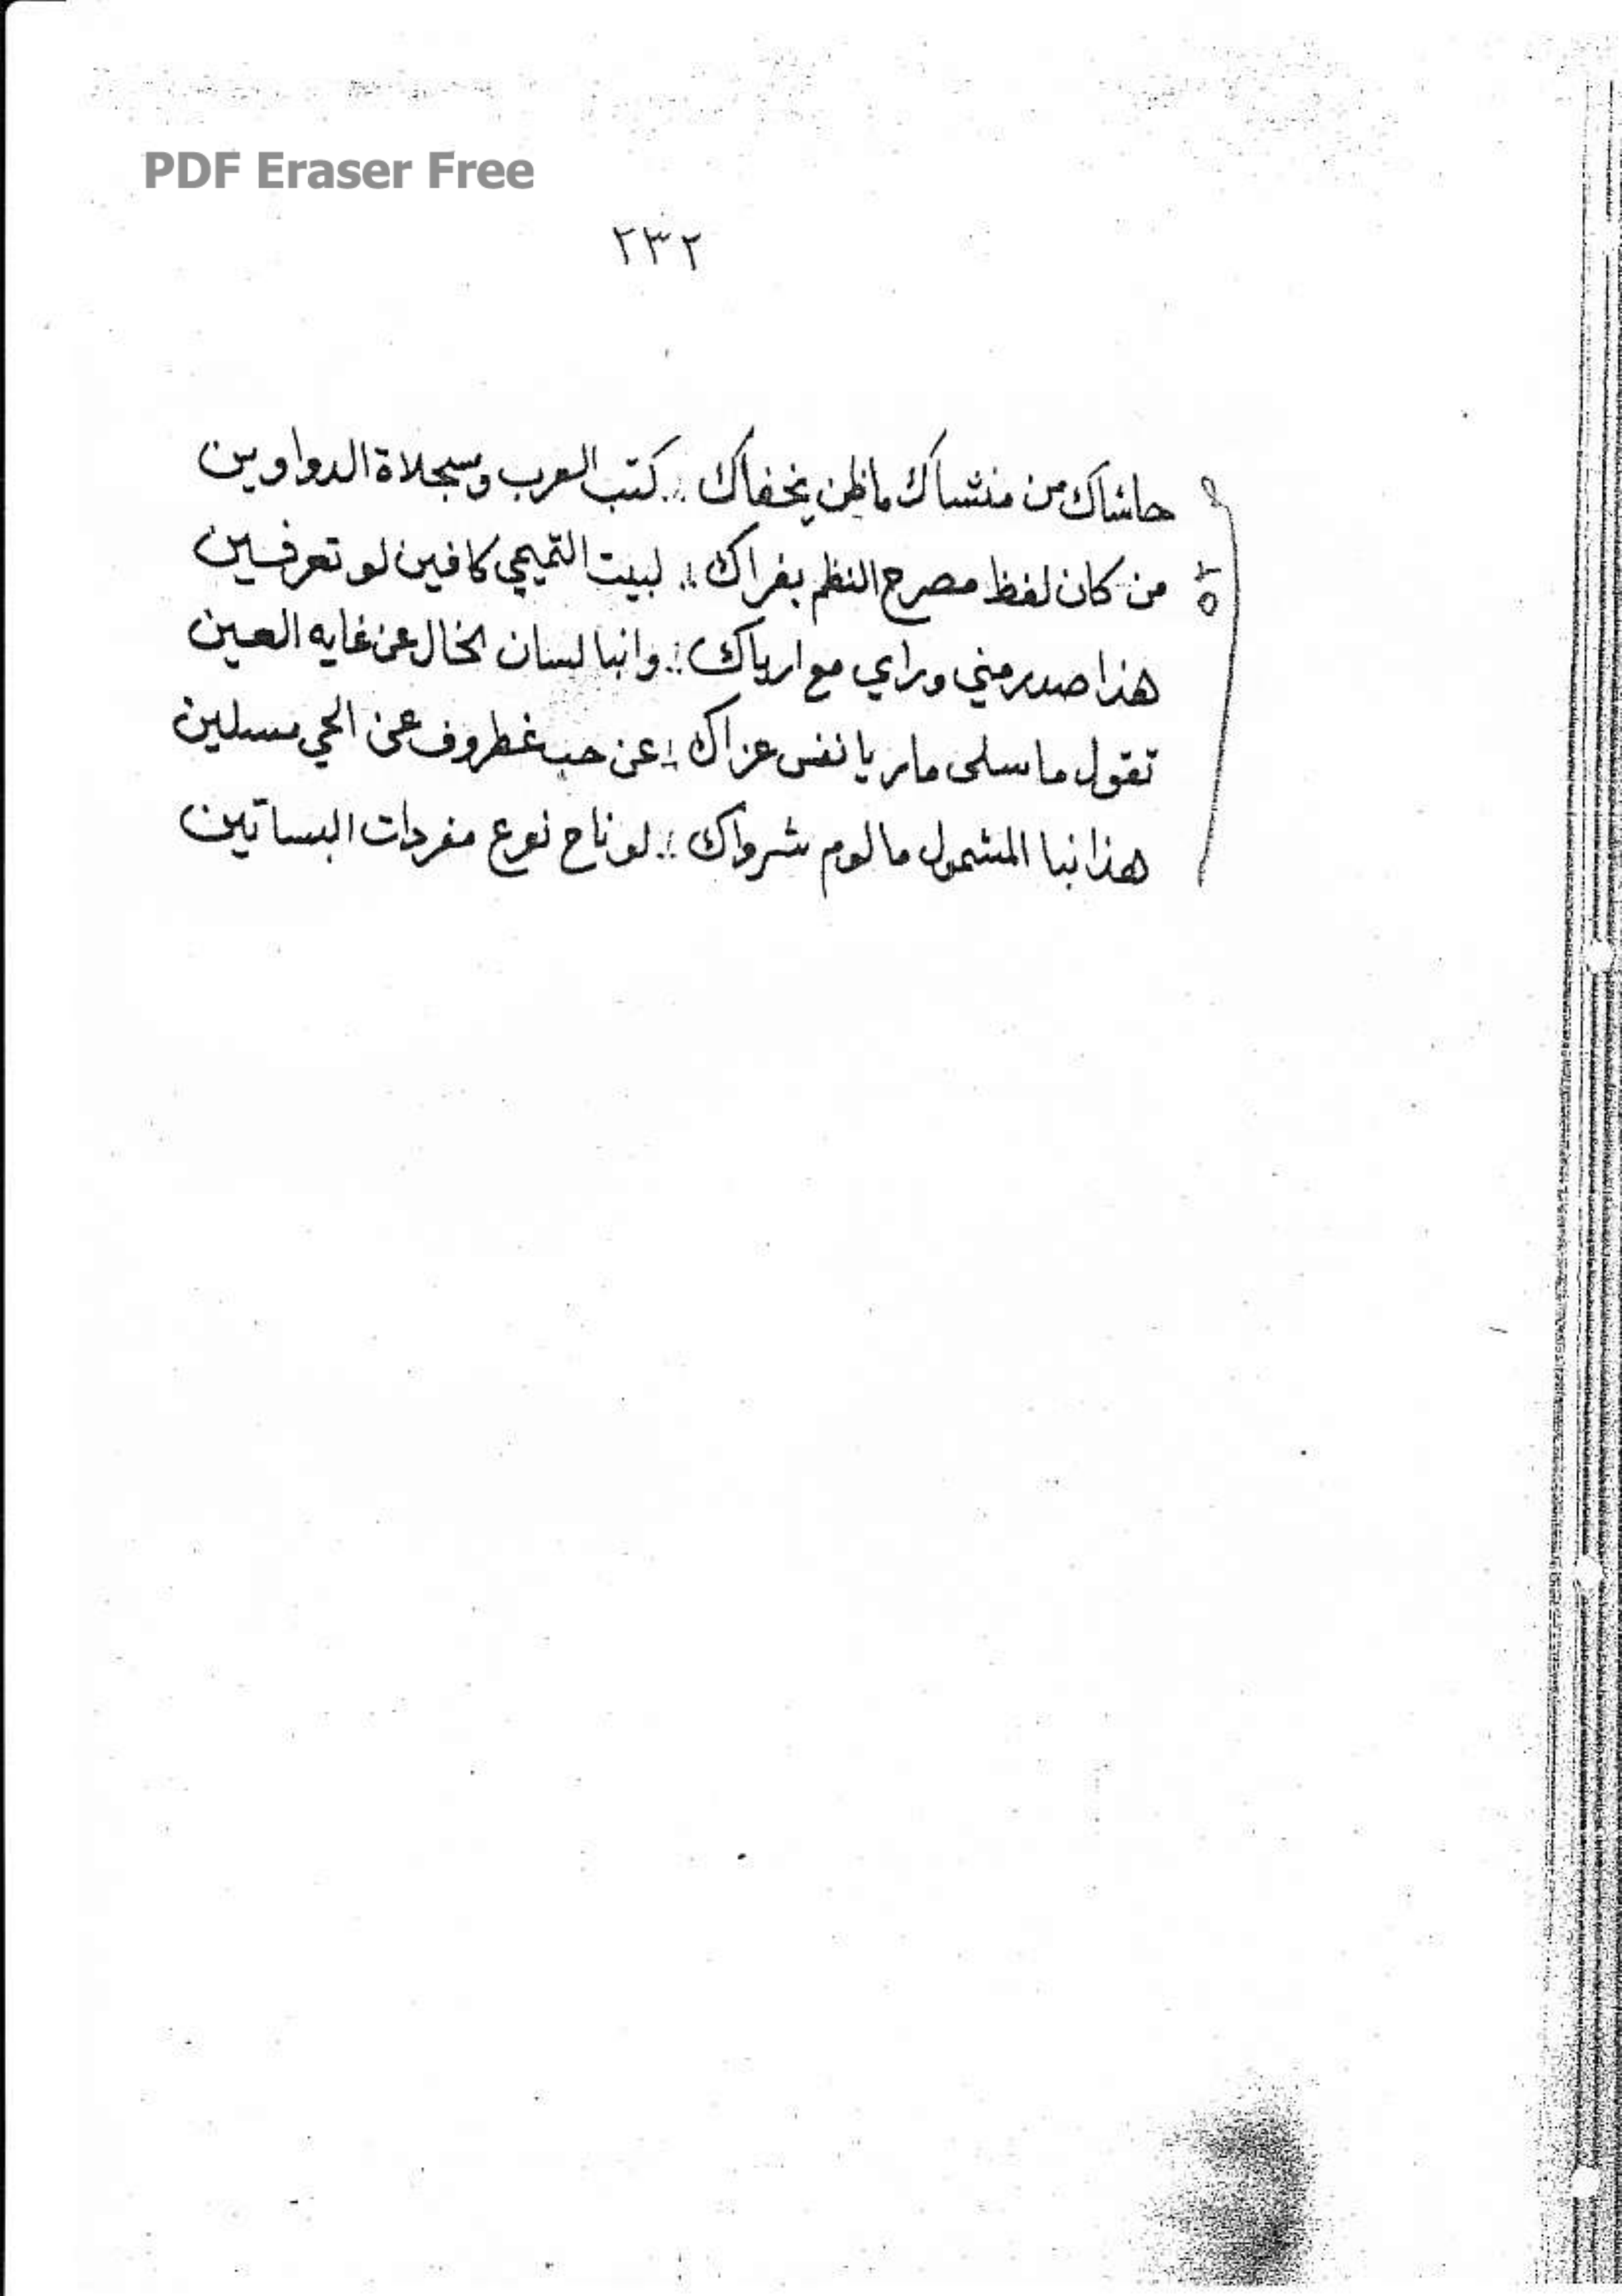 PDF Eraser Free
٢٣٢
حاشاك من منشاك ماظن يخفاك ∴ كتب العرب وسجلاة الدواوين
من كان لفظ مصرح النظم بفراك ∴ لبيت التميمي كافين لو تعرفين
هذا صدر مني وراي مع ارياك ∴ وانبا لسان الخال عن غايه العين
تقول ما سلى مار يا نفس عزاك ∴ عن حب غطروف عن الحي مسلين
هذا نبا المشمول مالوم شرواك ∴ لو ناح نوع مفردات البساتين